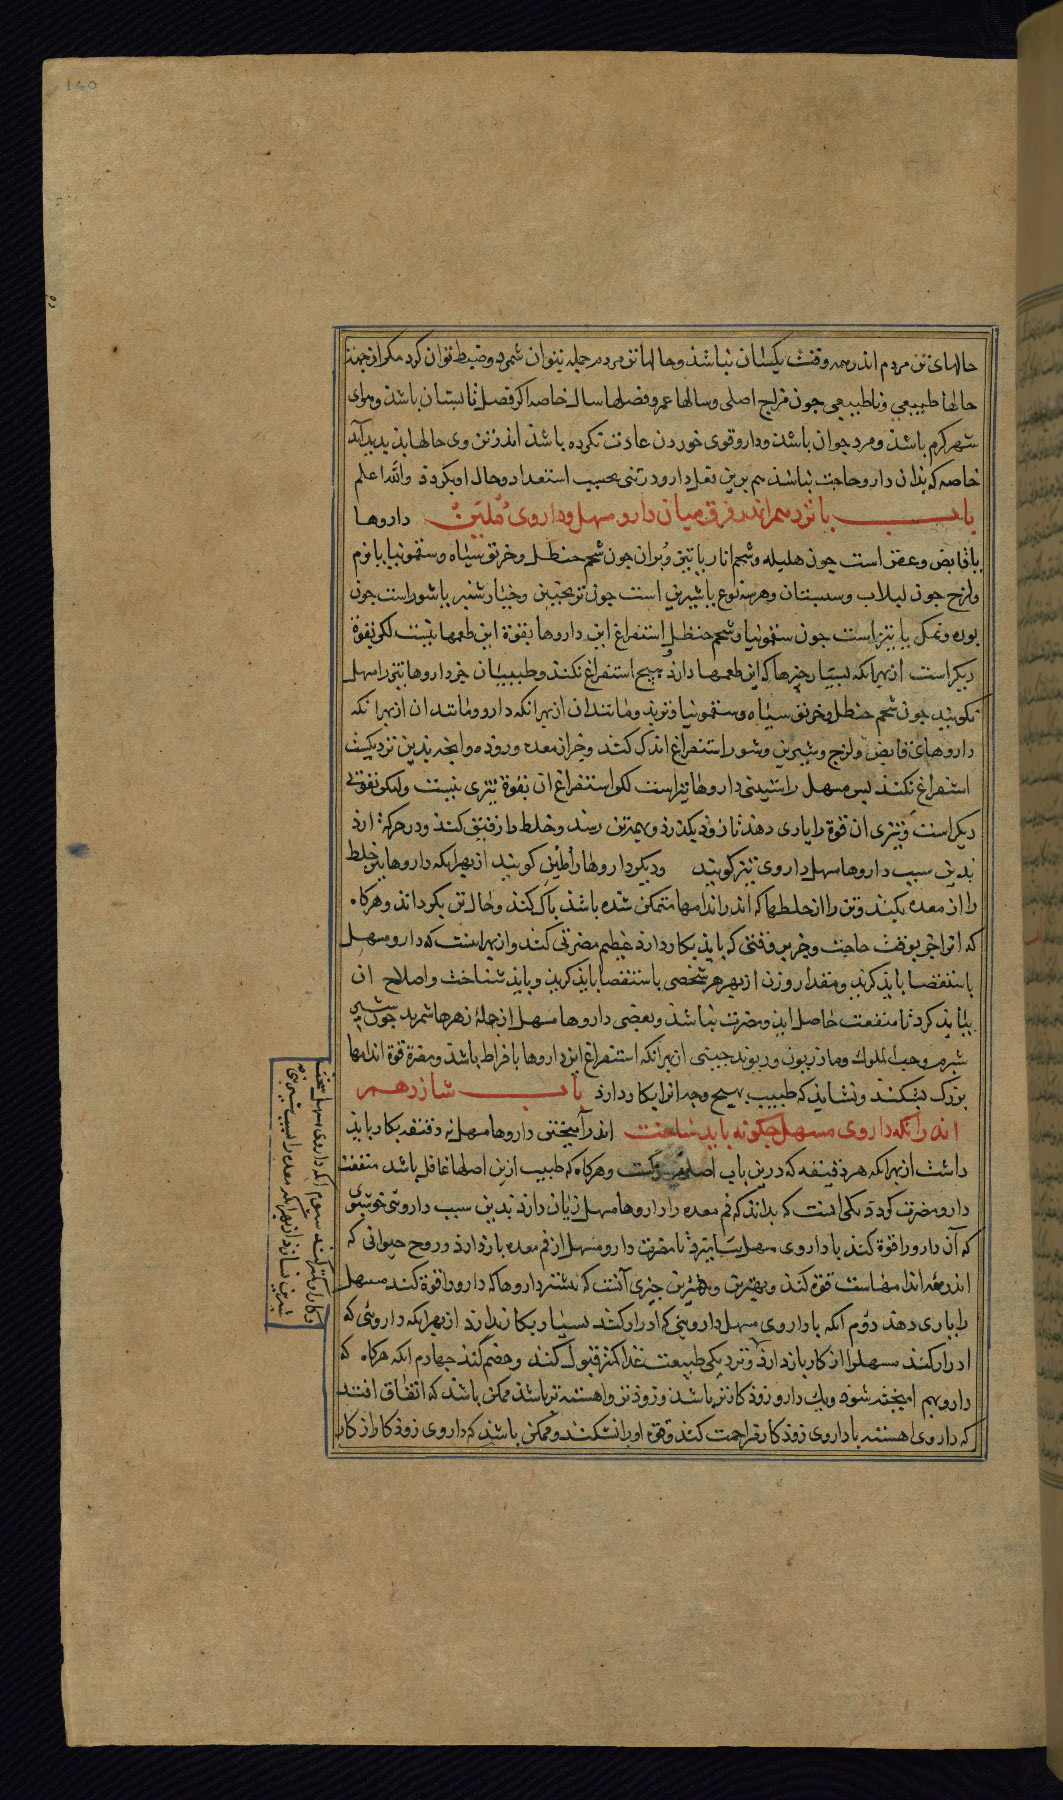 حالهای تن مردم اندر همه وقت یکسان نباشذ وحالهاء تن مردم جمله نتوان شمرد وضبط توان کرد مکر از جهت
حالها طبیعی وناطبیعی جون مزاج اصلی وسالها عمر وفصلها سال خاصه اکر فصل تابستان باشذ وهوای
شهر کرم باشذ ومرد جوان باشد وداروقوی خوردن عادت نکرده باشذ اندر تن وی حالها بذ بدید آید
خاصه که بذان دارو حاجت نباشذ هم برین نقل دارو در تنی بحسب استعداد وحال او بکردد والله اعلم
باب پانزدهم اندر فرق میان دارو مسهل وداروی مُلیّن داروها
یا قابض وعفص است جون هلیله وشحم انار یا تیز وبُران جون شحم حنظل وخربق سیاه وسقمونیا یا نرم
ولزج جون لبلاب وسبستان وهر سه نوع یا شیرین است جون ترنجبین وخیارشنبر یا شور است جون
بوره ونمک یا تیز است جون سقمونیا وشحم حنظل استفراغ این داروها بقوة این طعمها نیست لکن بقوة
دیکر است از بهر انکه بسیار جیزها که این طعمها دارذ هیج استفراغ نکنذ وطبیبان جز داروها تیز را مسهل
نکویند جون شحم حنظل وخربق سیاه وسقمونیا وتربد ومانند ان از بهر انکه دارو ومانند ان از بهر انکه
داروهای قابض ولزج وشیرین وشور استفراغ اندک کنند وجز از معده وروده وانجه بدین نزدیکست
استفراغ نکند بس مسهل راستینی داروها تیز است لکن استفراغ ان بقوة تیزی نیست ولکن بقوتی
دیکر است وتیزی ان قوة را یاری دهذ تا زوذ بکذرد وبهمه تن رسد وخلط را رقیق کنذ ودر حرکة ارذ
بدین سبب داروها مسهل داروی تیز کویند ودیکر داروها را مُلیّن کویند از بهر انکه داروها تیز خلط
را از معده بکند وتن را از خلطها که اندر اندامها متمکن شده باشذ باک کند وحال تن بکرداند وهرکاه
که انرا جز بوقت حاجت وجز بر وفقی که باید بکار دارذ عظیم مضرتی کند واز بهر اینست که دارو مسهل
باستقصا باید کزید ومقدار وزن از بهر هر شخصی باستقصا باید کزید وباید شناخت واصلاح ان
بباید کرد تا منفعت حاصل اید ومضرت نباشذ وبعضی داروها مسهل از جملهٔ زهرها شمرند جون شیر
شبرم وحب الملوک ومازریون وریوند جینی از بهر انکه استفراغ این داروها بافراط باشذ ومضرة قوة اندامها
بزرک بشکند ونشاید که طبیب بهیج وجه انرا بکار دارد باب شانزدهم
اندر انکه داروی مسهل جکونه باید ساخت اندر آمیختن داروها مسهل نه دقیقه بکار باید
داشت از بهر انکه هر دقیقه که درین باب اصلی بزرکست وهرکاه که طبیب ازین اصلها غافل باشد منفعت
دارو مضرت کردد یکی انست که بداند که فم معده را داروها مسهل زیان دارذ بدین سبب داروئی خوشبوی
که آن دارو را قوة کند با داروی مسهل بیامیزذ تا مضرت دارو مسهل از فم معده باز دارد وروح حیوانی که
اندر همه اندامهاست قوة کند وبهترین جیزی آنست که بیشتر داروها که دارو را قوة کند مسهل
را یاری دهد دوم انکه با داروی مسهل داروئی که ادرار کند بسیار بکار ندارد از بهر انکه داروئی که
ادرار کند مسهل را از کار باز دارد ونزدیکی طبیعت غذا کمتر قبول کند وهضم کند جهارم انکه هرکاه که
دارو بهم امیخته شوذ ویک دارو زوذ کارتر باشد وزوذتر واهسته تر باشد ممکن باشد که اتفاق افتد
که داروی اهسته با داروی زوذ کار مزاحمت کند وقوة او را بشکند وممکن باشد که داروی زوذ کار از کار
سوم انکه داروی مسهل سخت
وکار او کمتر کند
شیرین نسازد از بهر انکه معده را بسبب شیرینی